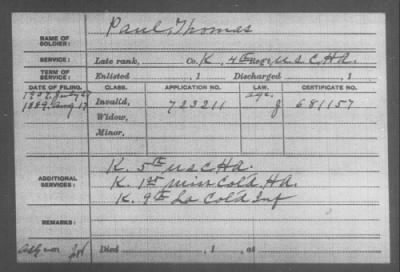 Paul, Thomas
NAME OF
SOLDIER:
SERVICE: Late rank, Co. K, 4th Reg't U.S.C.H.A.
TERM OF
SERVICE: Enlisted , 1 Discharged , 1
DATE OF FILING. CLASS. APPLICATION NO. LAW. CERTIFICATE NO.
1907 July
1889, Aug 17 Invalid, 723211 J 681157
Widow,
Minor,
ADDITIONAL
SERVICES:
K. 5th U S C H A.
K. 1st Miss Cold. H A.
K. 9th La Cold Inf
REMARKS:
Died , 1 , at